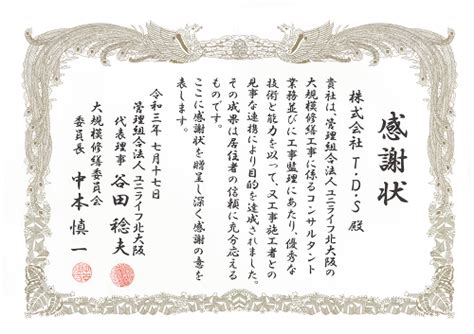 感謝状
株式会社 T・D・S 殿
貴社は、管理組合法人ユニライフ北大阪の
大規模修繕工事に係るコンサルタント
業務並びに工事監理にあたり、優秀な
技術と能力を以って、又工事施工者との
見事な連携により目的を達成されました。
その成果は居住者の信頼に充分応える
ものです。
ここに感謝状を贈呈し深く感謝の意を
表します。
令和三年 七月十七日
管理組合法人ユニライフ北大阪
代表理事 谷田 稔夫
大規模修繕委員会
委員長 中本 慎一